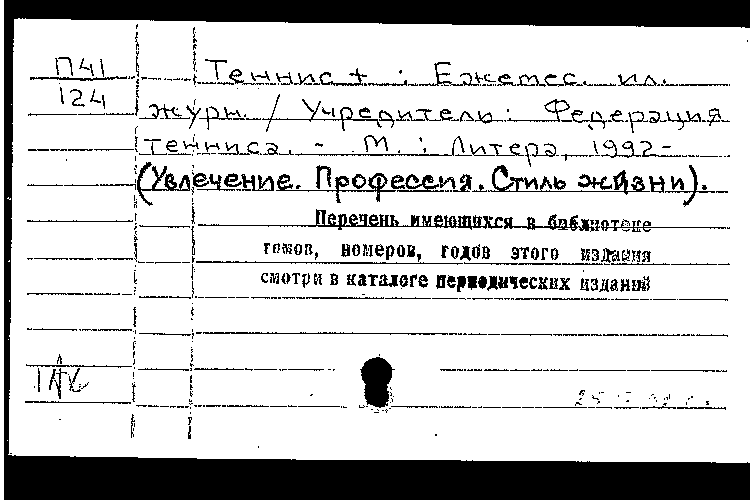 П41
124
Теннис + : Ежемес. ил.
журн. / Учредитель: Федерация
тенниса. - М. : Литера, 1992-
(Увлечение. Профессия. Стиль жизни).
Перечень имеющихся в библиотеке
томов, номеров, годов этого издания
смотри в каталоге периодических изданий